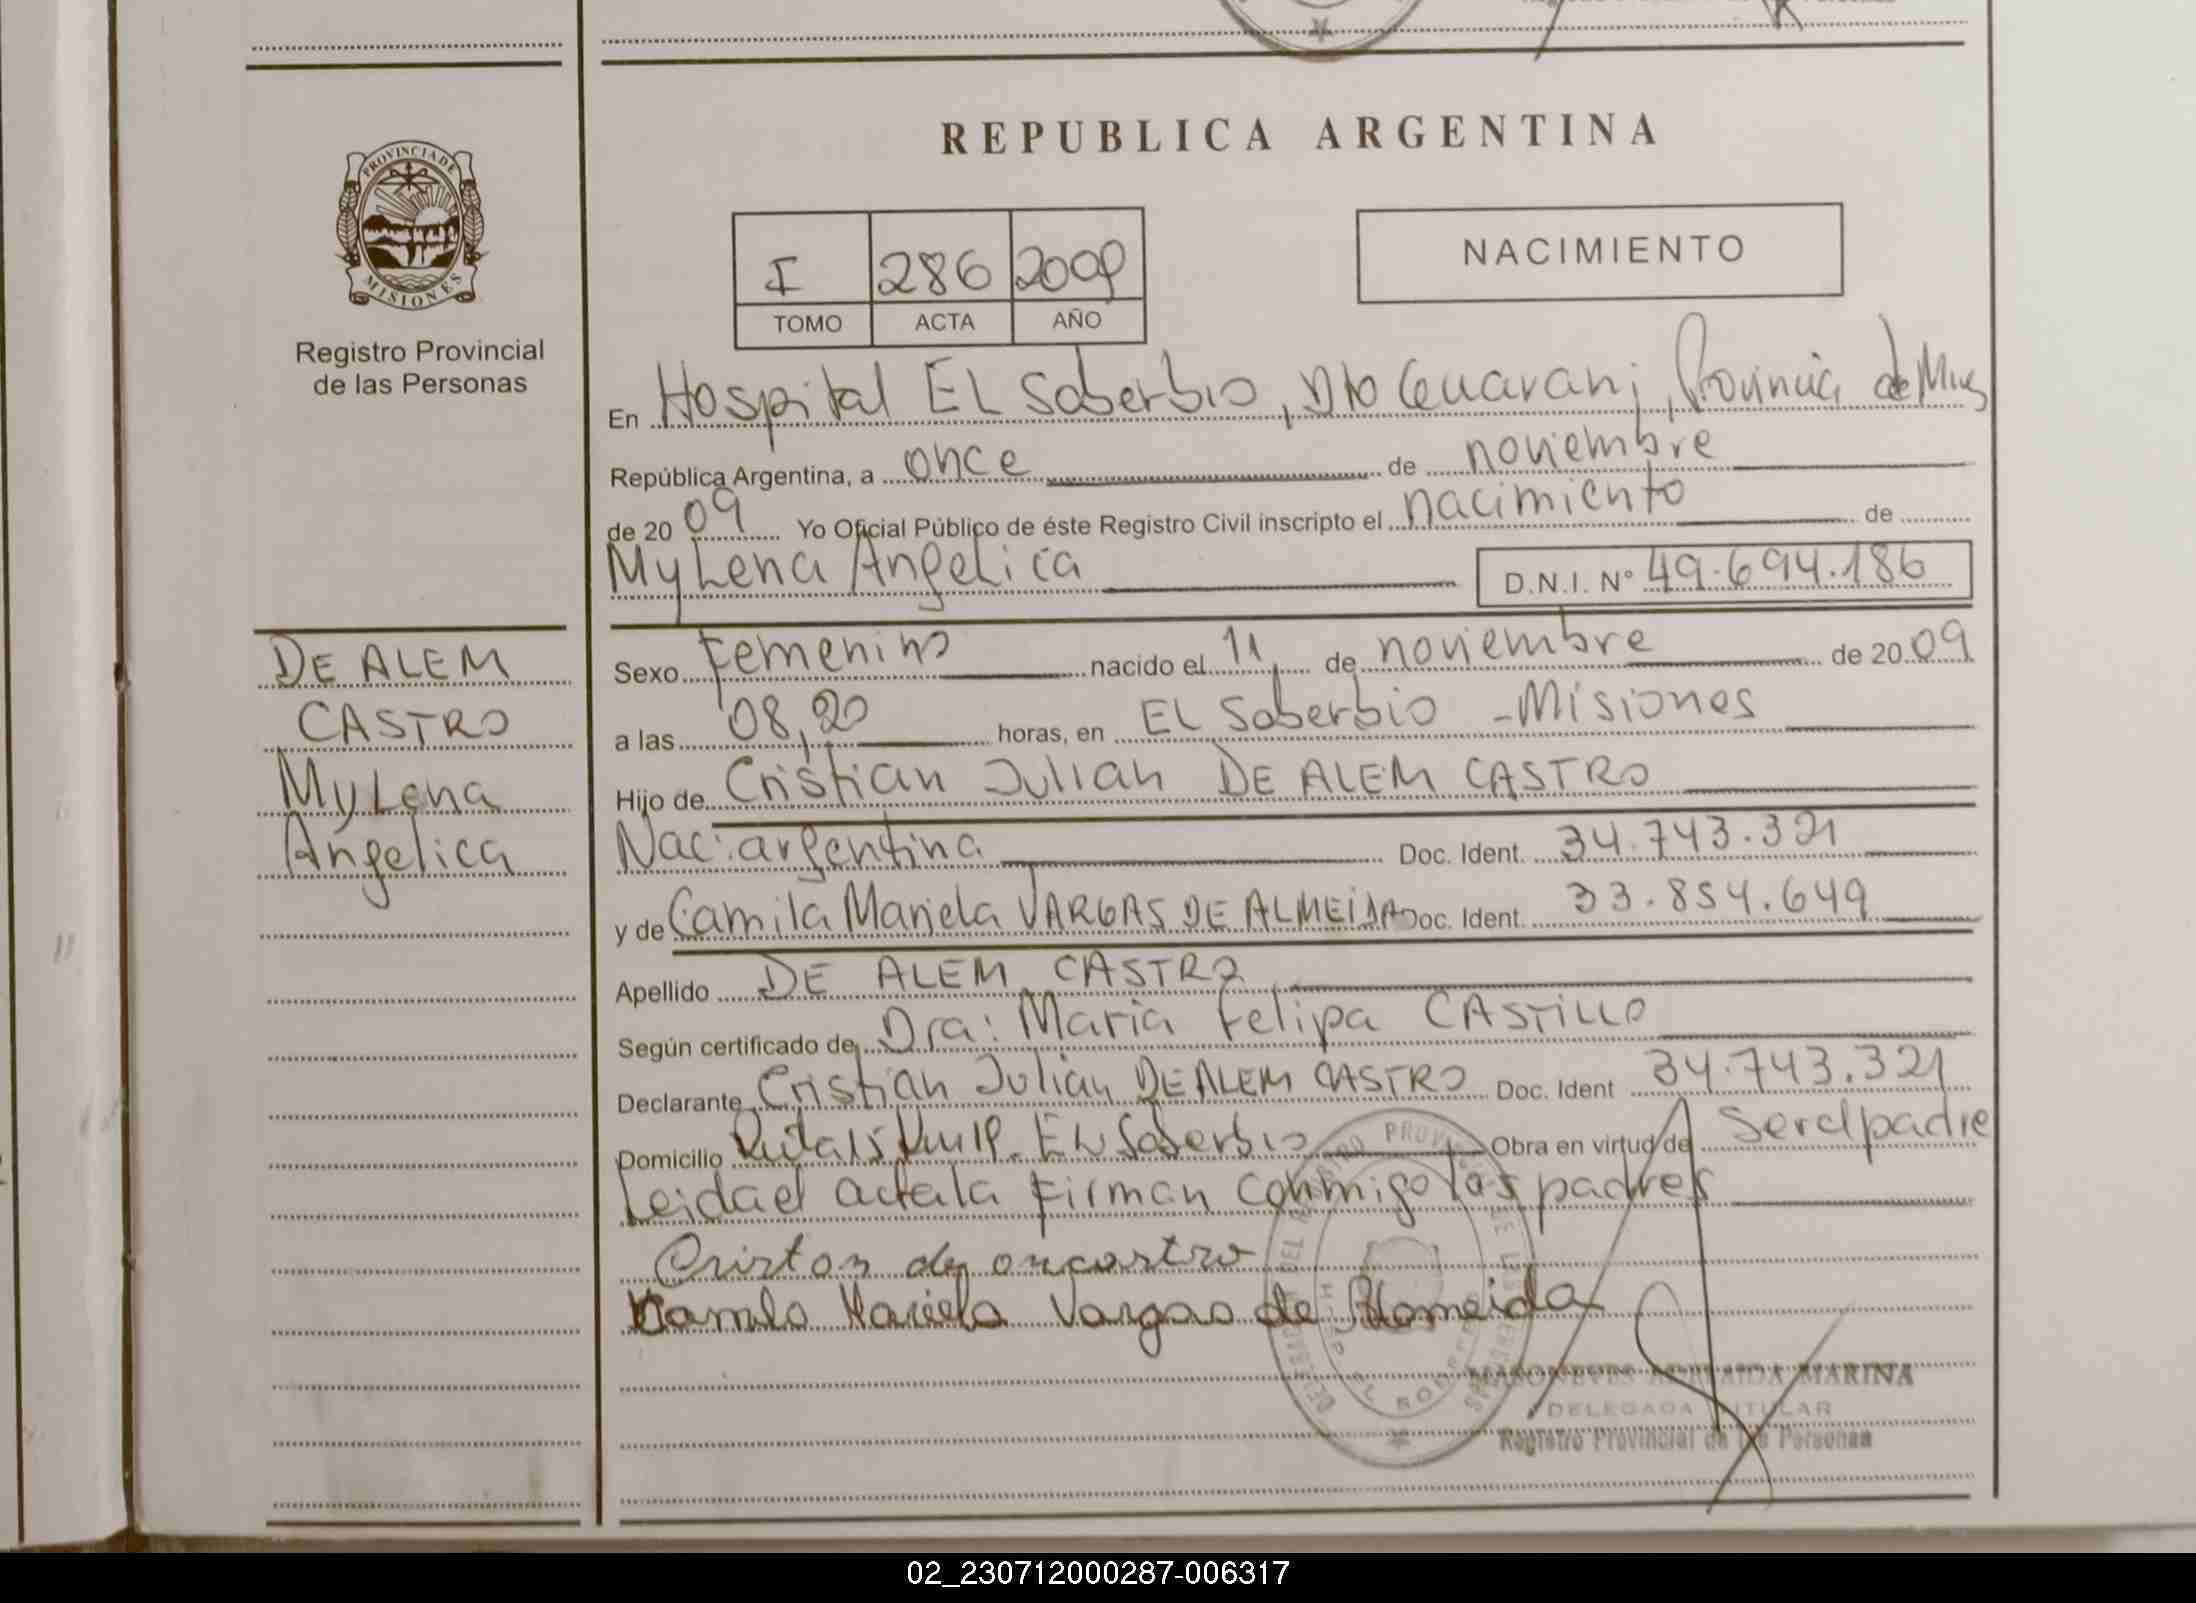 REPUBLICA ARGENTINA
PROVINCIA DE
MISIONES
Registro Provincial
de las Personas
I 286 2009
TOMO ACTA AÑO
NACIMIENTO
En Hospital EL Soberbio, Dto Guarani, Provincia de Mnes
República Argentina, a once de noviembre
de 20 09 Yo Oficial Público de éste Registro Civil inscripto el nacimiento de
MyLena Angelica D.N.I. Nº 49.694.186
DE ALEM
CASTRO
MyLena
Angelica
Sexo Femenino nacido el 11 de noviembre de 20 09
a las 08,20 horas, en EL Soberbio - Misiones
Hijo de Cristian Julian DE ALEM CASTRO
Nac: argentina Doc. Ident. 34.743.321
y de Camila Mariela VARGAS DE ALMEIDA Doc. Ident. 33.854.649
Apellido DE ALEM CASTRO
Según certificado de Dra: Maria Felipa CASTILLO
Declarante Cristian Julian DE ALEM CASTRO Doc. Ident 34.743.321
Domicilio EL Soberbio Obra en virtud de Ser el padre
Leida el acta la Firman conmigo los padres
Camila Mariela Vargas de Almeida
MARINA
DELEGADA TITULAR
Registro Provincial de las Personas
02_230712000287-006317